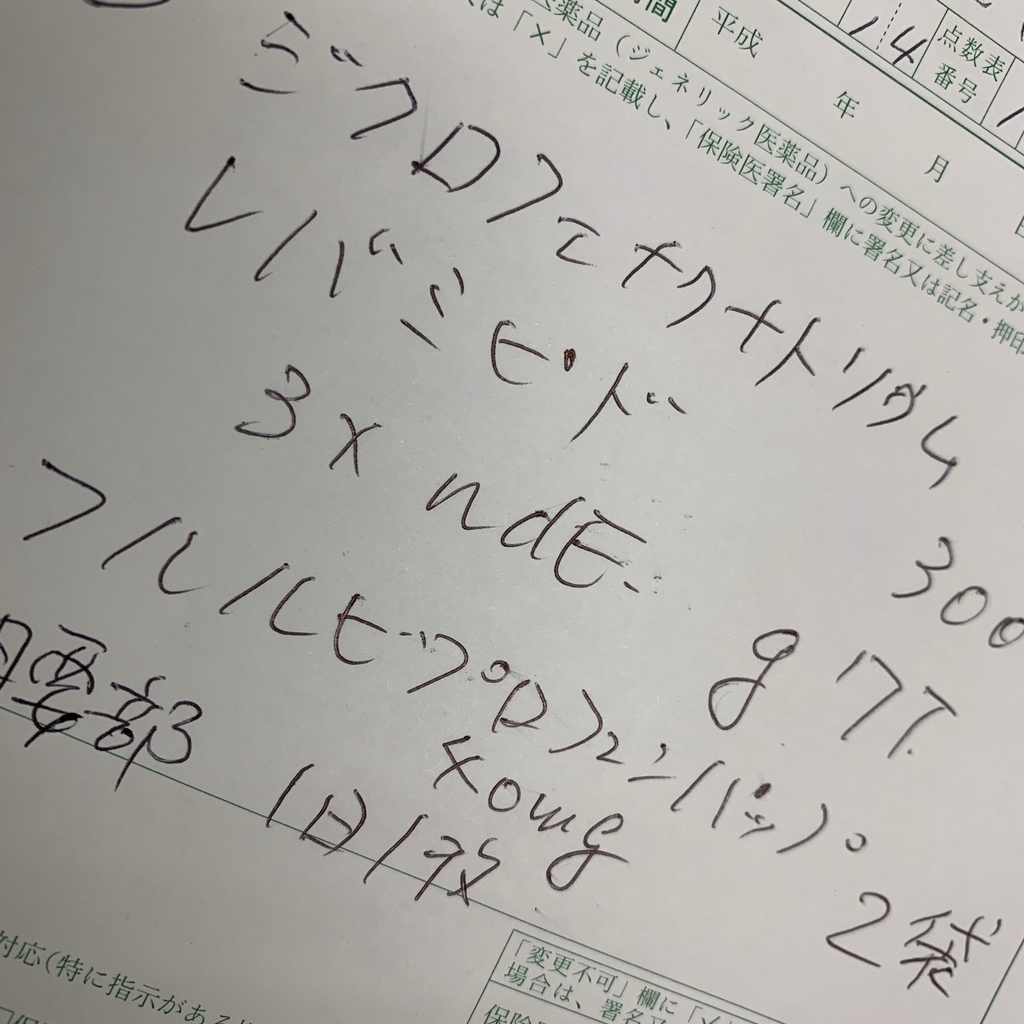 間
平成
年
月
14
点数表
番号
医薬品(ジェネリック医薬品)への変更に差し支えが
は「×」を記載し、「保険医署名」欄に署名又は記名・押印
ジクロフェナクナトリウム
レバミピド 300
3x ndE. 9 7T.
フルルビプロフェンパップ
40mg 2袋
腰部 1日1枚
対応(特に指示がある
「変更不可」欄に
場合は、署名又
保険医署名